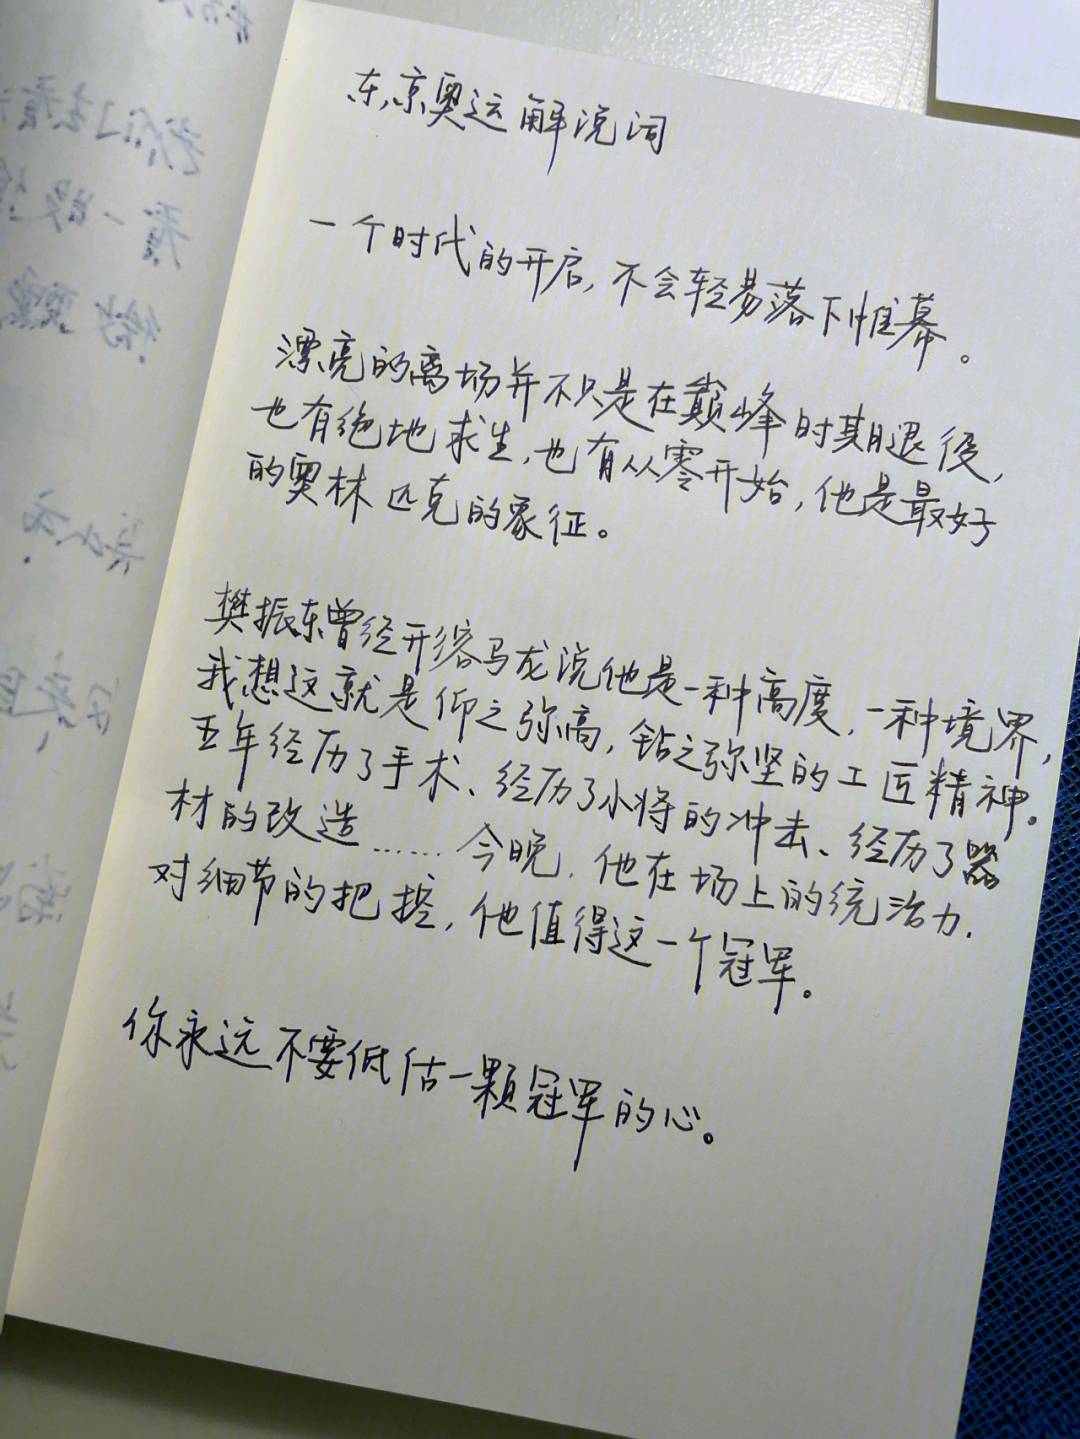 东京奥运解说词
一个时代的开启,不会轻易落下帷幕。
漂亮的离场并不只是在巅峰时期退役,
也有绝地求生,也有从零开始,他是最好
的奥林匹克的象征。
樊振东曾经形容马龙说他是一种高度,一种境界,
我想这就是仰之弥高,钻之弥坚的工匠精神。
五年经历了手术、经历了小将的冲击、经历了器
材的改造……今晚,他在场上的统治力.
对细节的把控,他值得这一个冠军。
你永远不要低估一颗冠军的心。